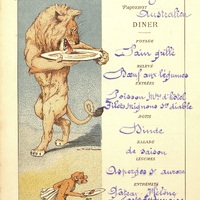 Paquebot
Australien
DINER
POTAGE
Pain grillé
RELEVÉ
Bœuf aux légumes
ENTRÉES
Poisson Mtre d'hôtel
Filets mignons Sce diable
ROTI
Dinde
SALADE
de saison
LÉGUMES
Asperges Sce aurore
ENTREMETS
Gâteau Hélène